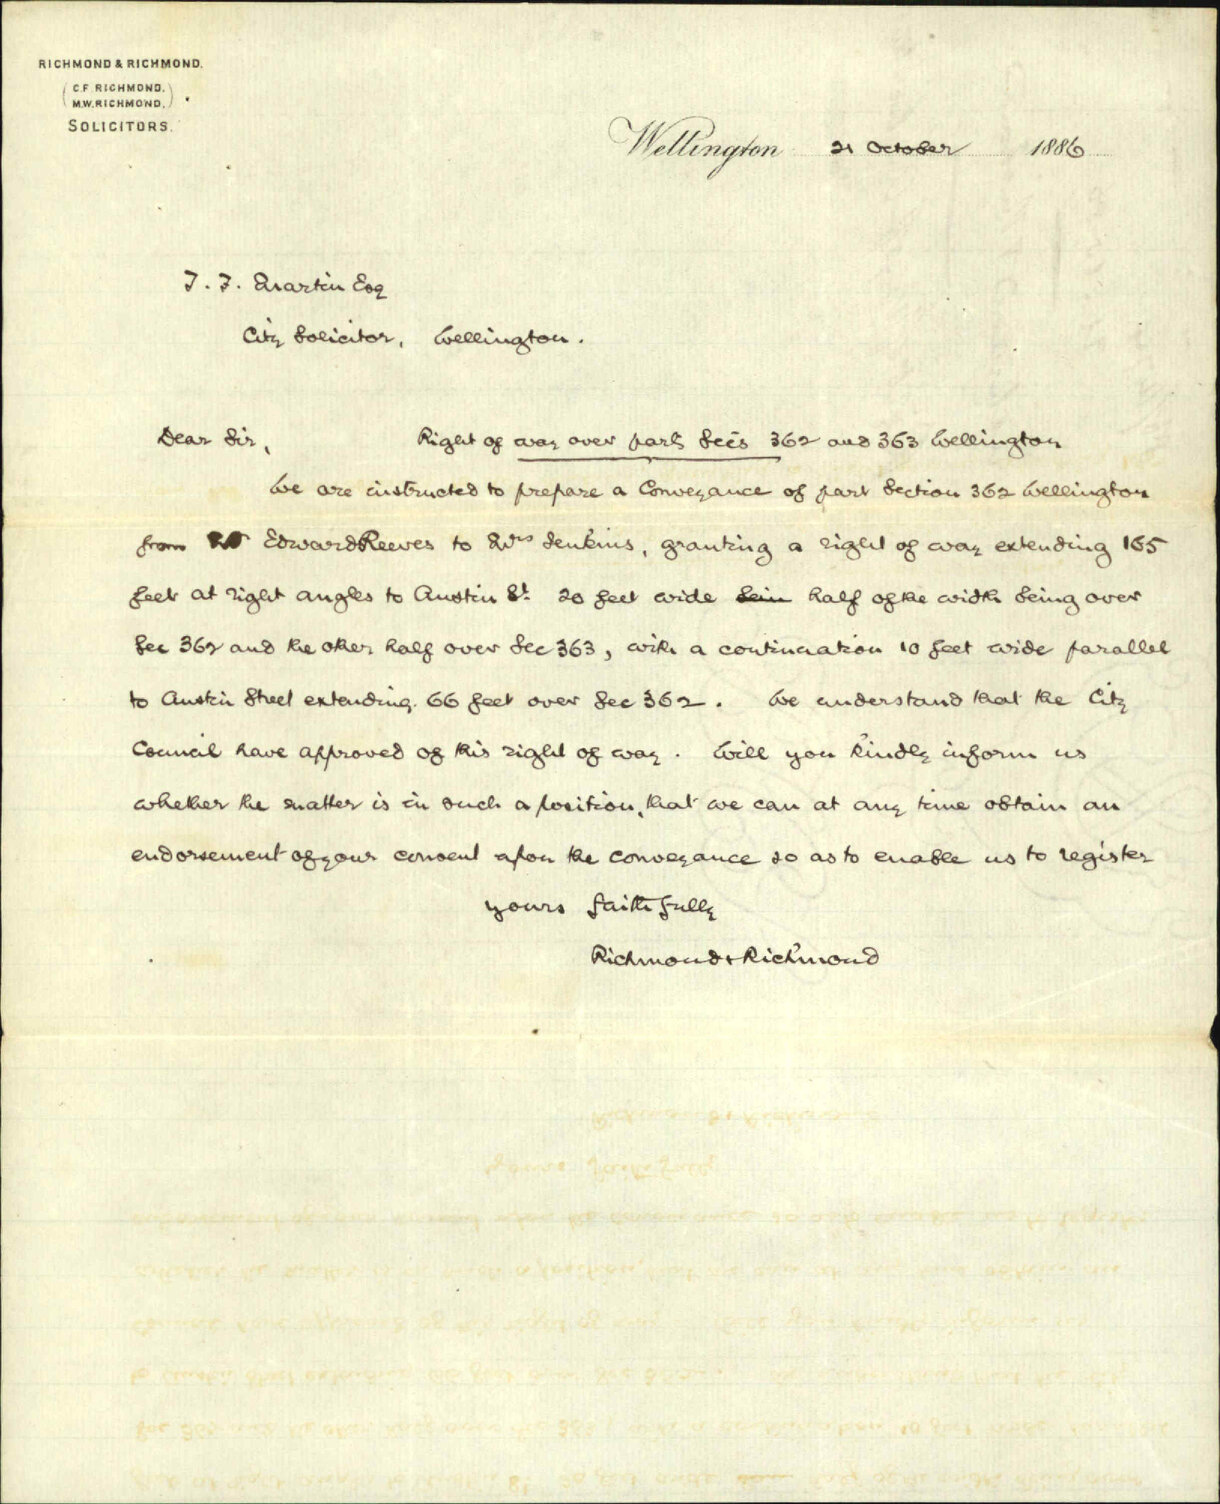 RICHMOND & RICHMOND.
C.F. RICHMOND.
M.W. RICHMOND.
SOLICITORS.
Wellington 21 October 1886
T. F. Martin Esq
City Solicitor, Wellington.
Dear Sir,
Right of way over parts Secs 362 and 363 Wellington
We are instructed to prepare a Conveyance of part Section 362 Wellington
from Edward Reeves to Mrs Jenkins, granting a right of way extending 165
feet at right angles to Austin St. 20 feet wide half of the width being over
Sec 362 and the other half over Sec 363, with a continuation 10 feet wide parallel
to Austin Street extending 66 feet over Sec 362. We understand that the City
Council have approved of this right of way. Will you kindly inform us
whether the matter is in such a position, that we can at any time obtain an
endorsement of your consent upon the conveyance so as to enable us to register
yours faithfully
Richmond & Richmond